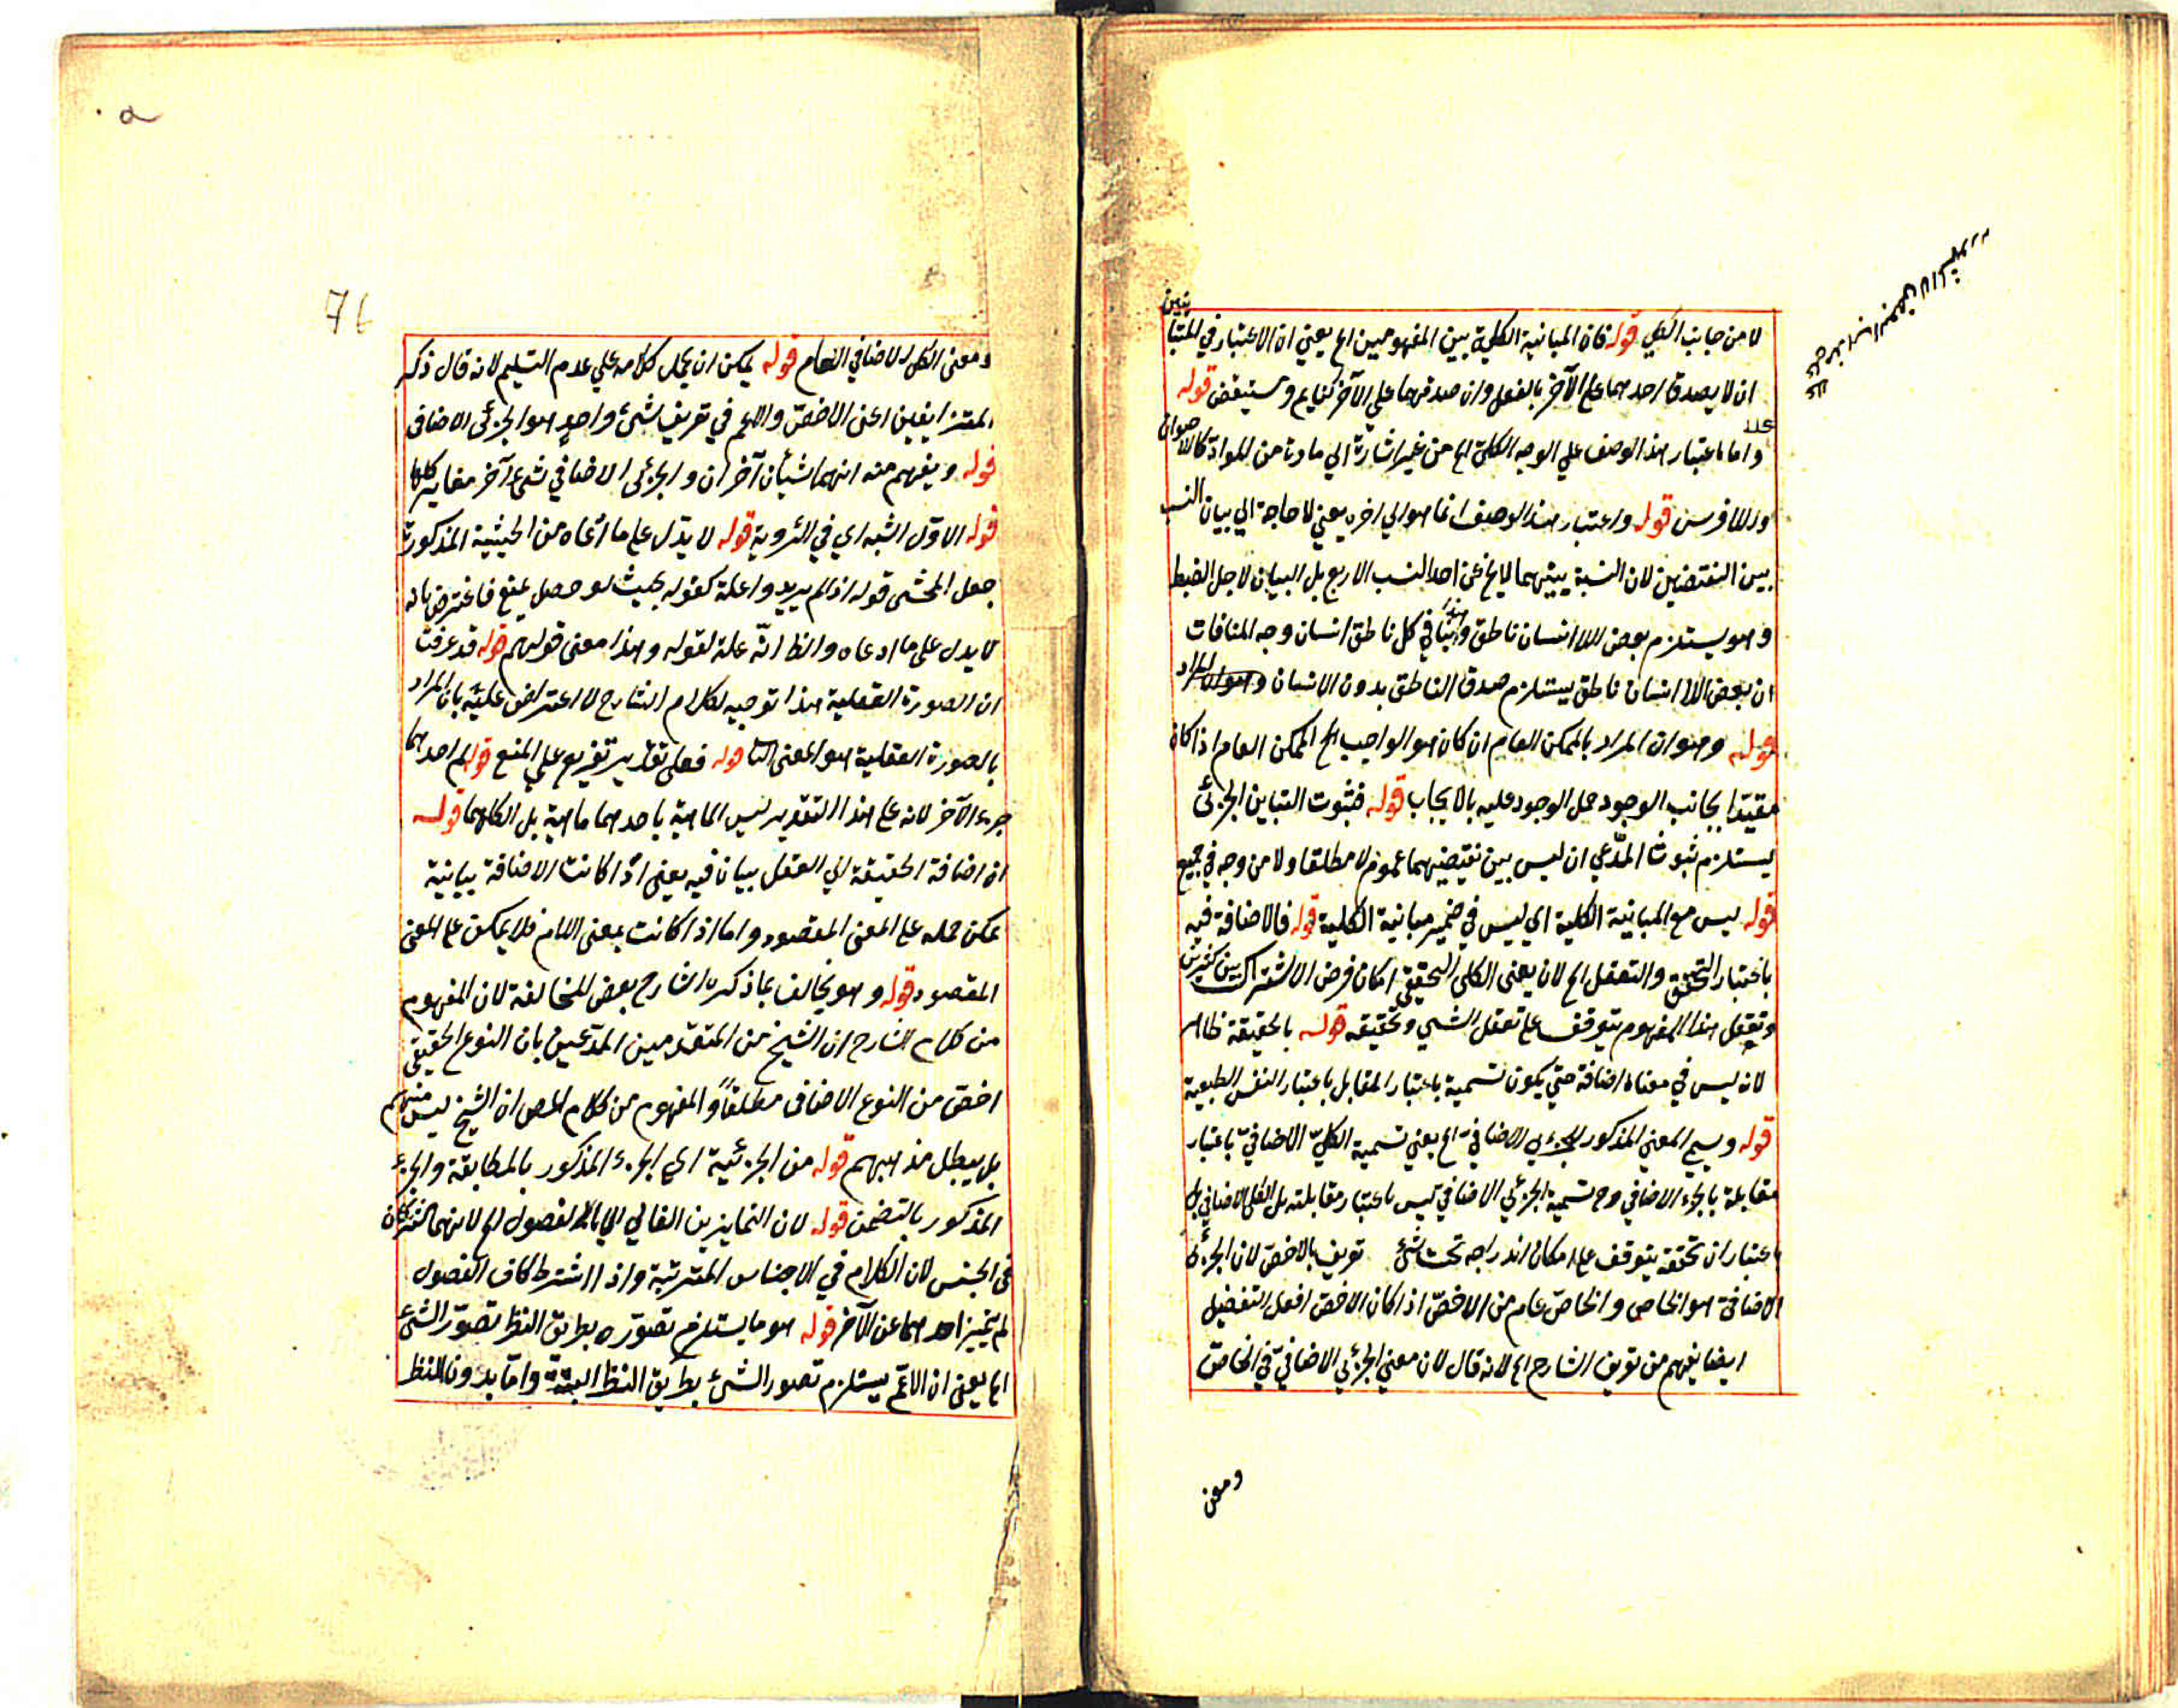 لا من جانب الكلي قوله فان المباينة الكلية بين المفهومين الخ يعني ان الاعتبار في المتبا
ينين
ان لا يصدق احدهما علي الآخر بالفعل وان صدقهما علي الآخر وستيقض قوله
واما باعتبار هذا الوصف علي الوجه الكلي الخ من غير اشارة الي مادة من المواد كاللاحيوان
واللافرس قوله واعتبار هذا الوصف انما هو الي اخره يعني لا حاجة الي بيان النسب
بين النقيضين لان النسبة بينهما لا يخ عن احد النسب الاربع بل البيان لاجل الضبط
وهو يستلزم بعض اللا انسان ناطق وهذا ينافي كل ناطق انسان وجه المنافات
ان بعض اللا انسان ناطق يستلزم صدق الناطق بدون الانسان وهو المراد
قوله وهو ان المراد بالممكن العام ان كان هو الواجب الخ الممكن العام اذا كان
مقيدا بجانب الوجود حمل الوجود عليه بالايجاب قوله فثبوت التباين الجزئي
يستلزم ثبوت المدعي ان ليس بين نقيضيهما عموم لا مطلقا ولا من وجه في جميع
قوله ليس مع المباينة الكلية اي ليس في ضمير مباينة الكلية قوله فالاضافة فيه
باعتبار التحقق والتعقل الخ لان يعني الكلي الحقيقي امكان فرض الاشتراك بين كثيرين
وتعقل هذا المفهوم يتوقف علي تعقل الشيء وتحقيقه قوله بالحقيقة ظاهر
لان ليس في معناه اضافة حتي يكون تسمية باعتبار المقابل باعتبار النفس الطبيعية
قوله ويسمي المعني المذكور للجزئي الاضافي الخ يعني تسمية الكلي الاضافي باعتبار
مقابلة بالجزء الاضافي وح تسمية الجزئي الاضافي ليس باعتبار مقابلته بل الكلي الاضافي بل
باعتبار ان تحققه يتوقف علي امكان اندراجه تحت شيء تعريف بالاخص لان الجزئي
الاضافي هو الخاص والخاص عام من الاخص اذا كان الاخص افعل التفضيل
ايضا يفهم من تعريف الشارح الخ لانه قال لان معني الجزئي الاضافي في الخاص
ومعني
76
ومعني الكلي الاضافي العام قوله يمكن ان يحمل كلامه علي عدم التسليم لانه قال ذكر
المتضايفين اعني الاخص والاعم في تعريف شيء واحد هو الجزئي الاضافي
قوله ويفهم منه انهما شيأن آخران والجزئي الاضافي شيء آخر مغاير كلاهما
قوله الاول اشبه اي في الرؤية قوله لا يدل علي ما ادعاه من الحيثية المذكورة
جعل المحشي قوله اذ لم يريدوا علة كقوله بحيث لو حصل يمنع فاعترض بانه
لا يدل علي ما ادعاه والظ انه علة لقوله وهذا معني قولهم قوله قد عرفت
ان الصورة العقلية هذا توجيه لكلام الشارح لا اعتراض عليه بان المراد
بالصورة العقلية هو المعني الثا قوله فعلي تقدير تفريع علي المنع قوله لم احدهما
جزء الآخر لانه علي هذا التقدير ليس الماهية باحدهما ماهية بل الكلاهما قوله
ان اضافة الحقيقة الي العقل بيان فيه يعني اذا كانت الاضافة بيانية
يمكن حمله علي المعني المقصود واما اذا كانت بمعني اللام فلا يمكن علي المعني
المقصود قوله وهو يخالف بما ذكره الشارح بعض المخالفة لان المفهوم
من كلام الشارح ان الشيخ من المتقدمين المدعين بان النوع الحقيقي
اخص من النوع الاضافي مطلقا والمفهوم من كلام المص ان الشيخ ليس منهم
بل يبطل مذاهبهم قوله من الجزئية اي الجزء المذكور بالمطابقة والجزء
المذكور بالتضمن قوله لان التمايز بين الفالي الي بالفصول الخ لانهما تشتركان
في الجنس لان الكلام في الاجناس المترتبة واذا اشترطا كاف الفصول
لم يتميز احدهما عن الآخر قوله هو ما يستلزم تصوره بطريق النظر تصور الشيء
الخ يعني ان الاعم يستلزم تصور الشيء بطريق النظر البتة واما بدون النظر